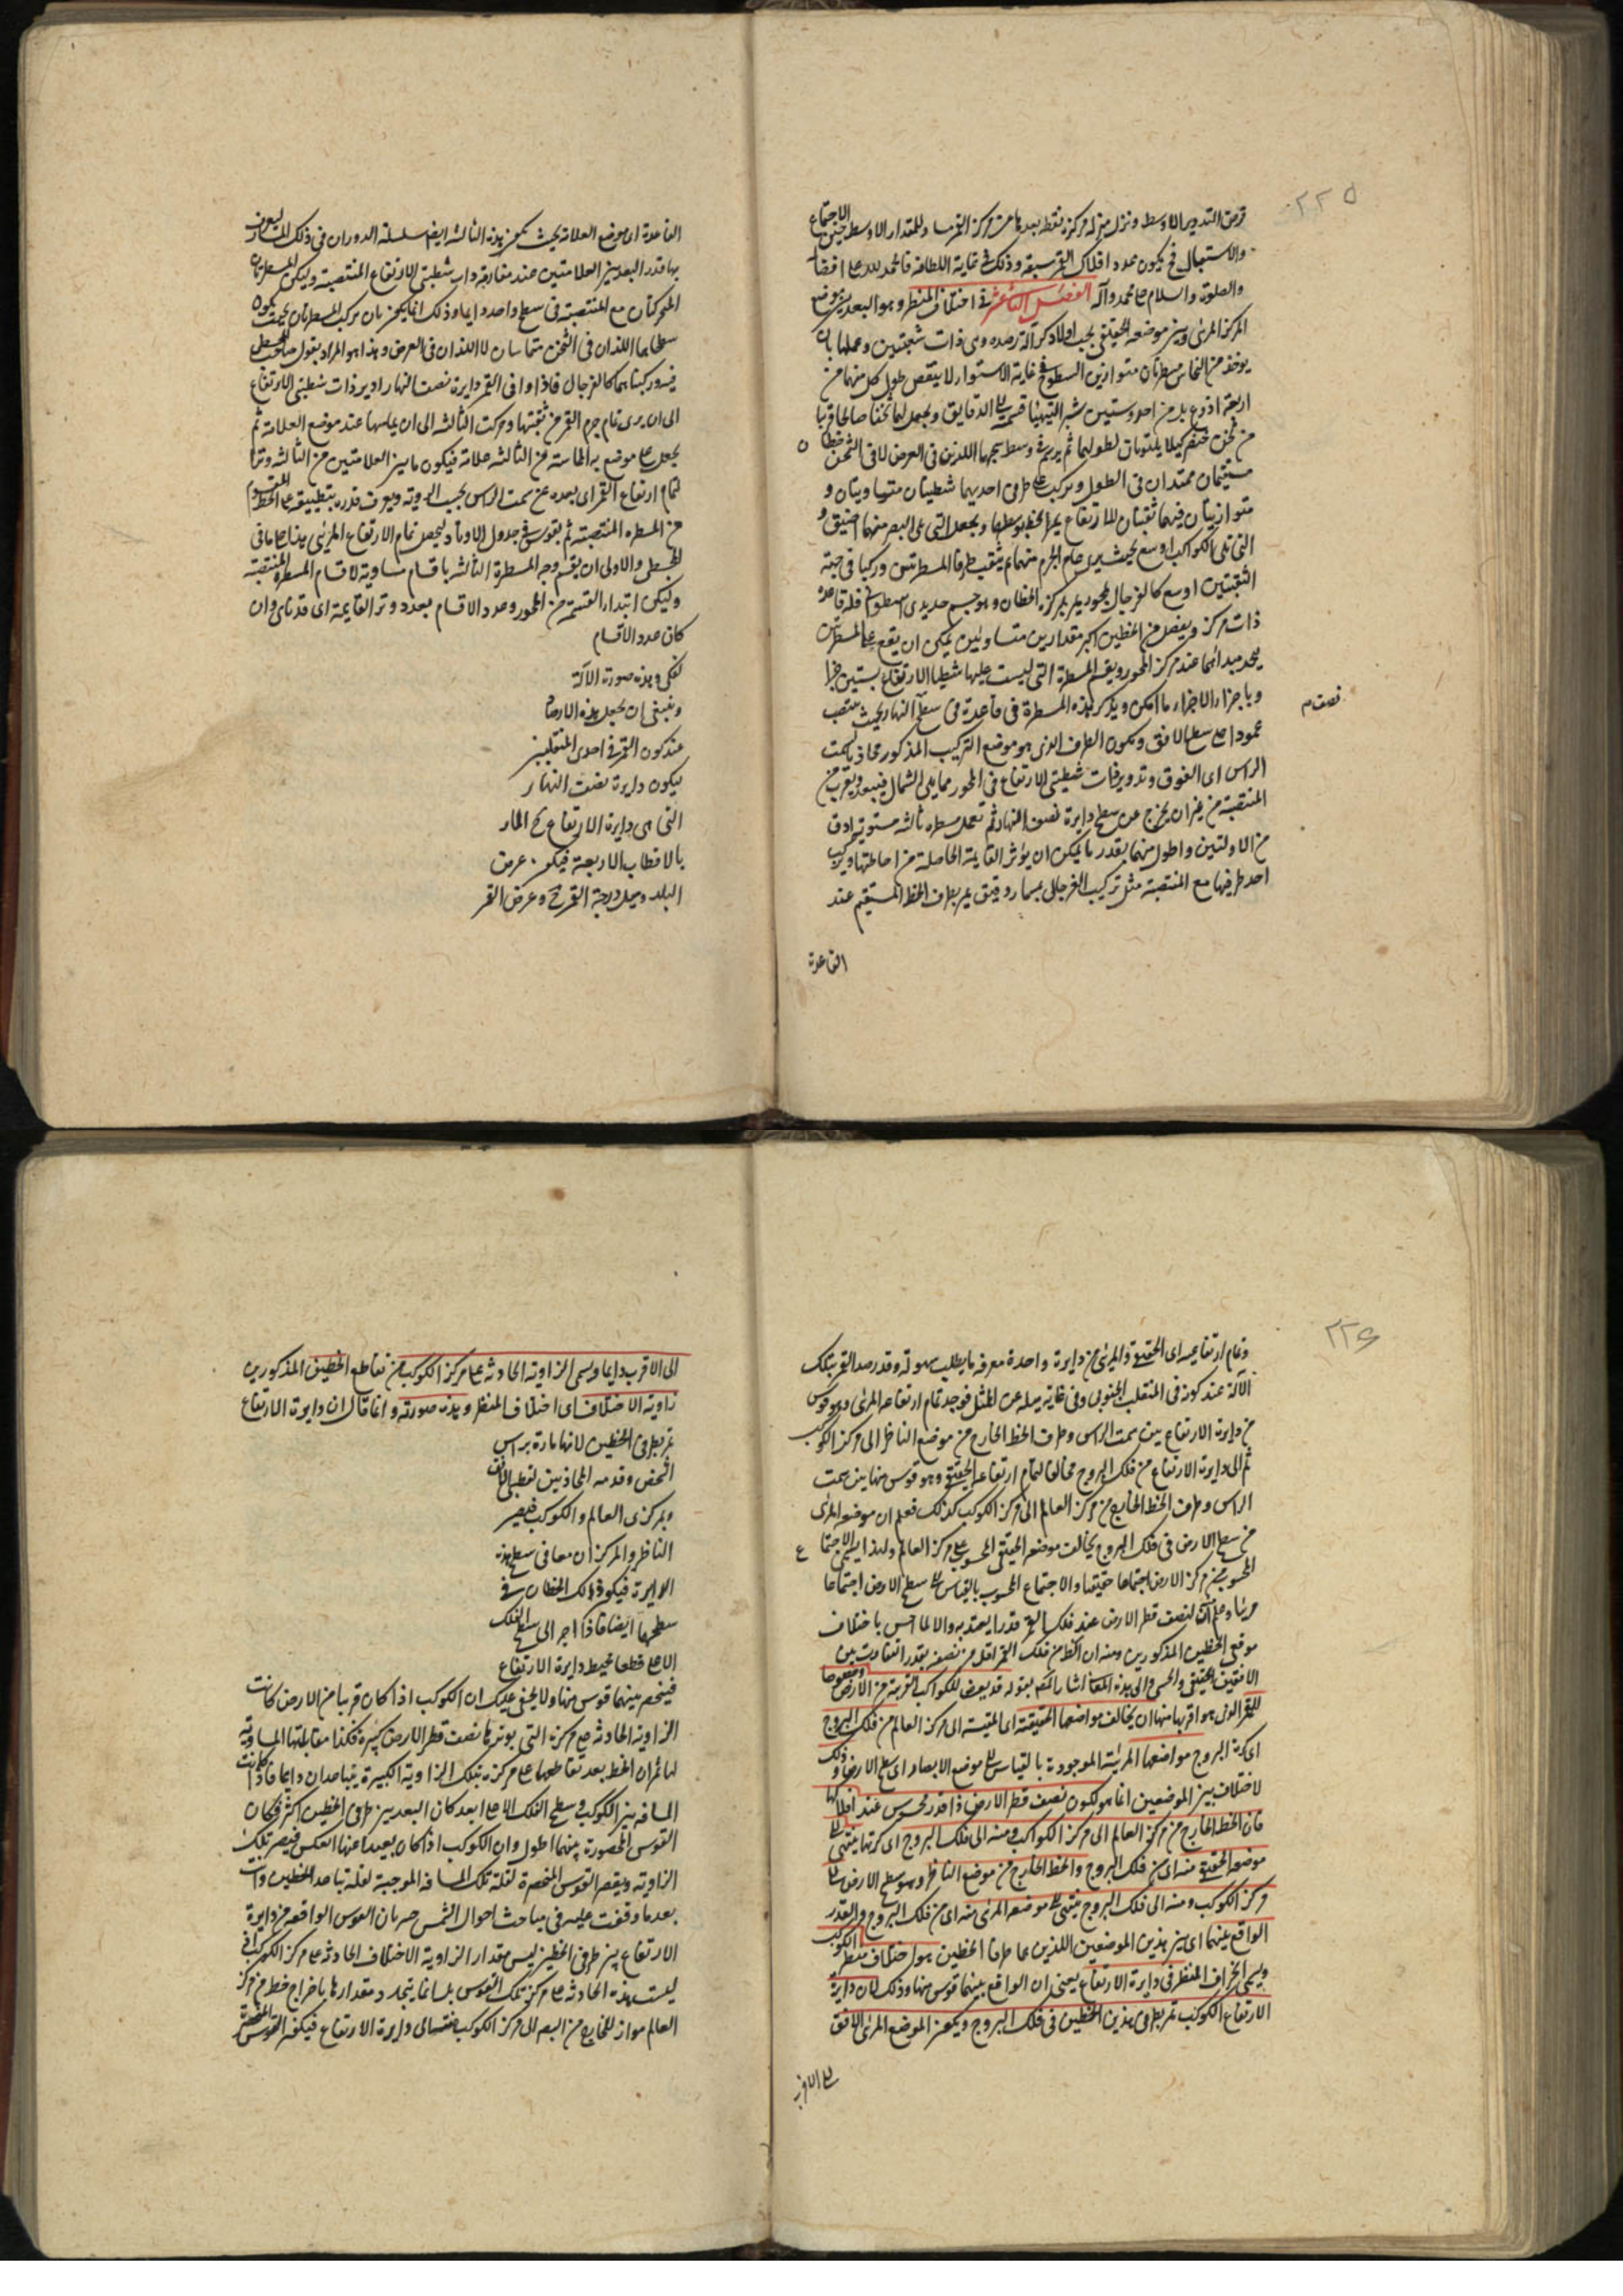 ٢٢٥
والاستقبال فح يكون عدد افلاك القمر سبعة وذلك فى غاية اللطافة فالحمد لله على افضاله
والصلوة والسلام على محمد وآله الفصل الثانى عشر فى اختلاف المنظر وهو البعد بين موضع
المركز المرئى وبين موضعه الحقيقى يجب اولا ذكر آلة رصده وهى ذات شعبتين وعملها بان
يوخذ من النحاس مسطرتان متوازيتى السطوح فى غاية الاستواء لا ينقص طول كل منهما من
اربعة اذرع
مستقيمان ممتدان فى الطول ويركب على طرفى احديهما شظيتان متساويتان و
متوازيتان فيهما ثقبتان للارتفاع يمر الخط بوسطهما ويجعل التى تلى البصر منهما اضيق و
التى تلى الكواكب اوسع بحيث يرى تمام الجرم منهما ثم يثقب طرفا المسطرتين وركبا فى جهة
الثقبتين اوسع كالفرجال بمحور يمر بمركزه الخطان
ذات مركز ويفصل من الخطين اكبر مقدارين متساويين يمكن ان يقع على المسطرتين
يحد مبدأهما عند مركز المحور ويقسم المسطرة التى ليست عليها شظيتا الارتفاع بستين جزأ
وباجزاء الاجزاء ما امكن ويذكر هذه المسطرة فى قاعدة فى سطح النهار بحيث ينتصب
نصف م
عمودا على سطح الافق ويكون الطرف الذى هو موضع التركيب المذكور محاذ بالسمت
الراس اى الفوق وتدوير ذات شظيتى الارتفاع فى المحور مما يلى الشمال فيبعد ويقرب من
المنتصبة من غير ان يخرج عن سطح دايرة نصف النهار ثم تعمل مسطرة ثالثة مستوية ادق
من الاولتين واطول منهما بقدر ما يمكن ان يوثر القايمة الحاصلة من احاطتهما ويركب
احد طرفيها مع المنتصبة مثل تركيب الفرجال بمسمار دقيق يمر بطرف الخط المستقيم عند
القاعدة
القاعدة اى موضع العلامة بحيث يمكن هذه الثالثة ايضا سلسلة الدوران فى ذلك السطح ليعرف
بها قدر البعد بين العلامتين عند مفارقة ذات شظيتى الارتفاع المنتصبة وليكن المسطرتان
المتحركتان مع المنتصبة فى سطح واحد دايما وذلك انما يمكن بان يركب المسطرتان بحيث يكون
سطحاهما اللذان فى الثخن متماسان لا اللذان فى العرض وهذا هو المراد بقول صاحب المجسطى
فيدور كتابهما كالفرجال فاذا وافى القمر دايرة نصف النهار ادير ذات شظيتى الارتفاع
الى ان يرى تمام جرم القمر من ثقبتها وحركت الثالثة الى ان يماسها عند موضع العلامة ثم
يجعل على موضع المماسة من الثالثة علامة فيكون ما بين العلامتين من الثالثة وترا
لتمام ارتفاع القمر اى بعده عن سمت الراس بحسب الروية ويعرف قدره بتطبيقه على الخط المقسوم
من المسطرة المنتصبة ثم يقوس فى جدول الاوتار ليحصل تمام الارتفاع المرئى هذا على ما فى
المجسطى والاولى ان يقسم وجه المسطرة الثالثة باقسام مساوية لاقسام المسطرة المنتصبة
وليكن ابتداء القسمة من المحور وعدد الاقسام بعدد وتر القايمة
كان عدد الاقسام
لفكى وهذه صورة الآلة
وينبغى ان يجعل هذه الارصاد
عند كون القمر فى احدى المنقلبين
ليكون دايرة نصف النهار
التى هى دايرة الارتفاع ح المار
بالاقطاب الاربعة فيكون عرض
البلد وميل درجة القمر ح وعرض القمر
٢٢٦
وتمام ارتفاعيه اى الحقيقى والمرئى من دايرة واحدة معرفة ما يطلب بسهولة وقد رصد القمر بتلك
الآلة عند كونه فى المنقلب الجنوبى وفى غاية ميله عن الممثل فوجد تمام ارتفاعه المرئى وهو قوس
من دايرة الارتفاع بين سمت الراس وطرف الخط الخارج من موضع الناظر الى مركز الكوكب
ثم الى دايرة الارتفاع من فلك البروج مخالفا لتمام ارتفاعه الحقيقى وهو قوس منها بين سمت
الراس وطرف الخط الخارج من مركز العالم الى مركز الكوكب كذلك فعلم ان موضعه المرئى
من سطح الارض فى فلك البروج يخالف موضعه الحقيقى المحسوب على مركز العالم ولهذا يسمى الاجتماع
المحسوب من مركز الارض اجتماعا حقيقيا والاجتماع المحسوب بالقياس الى سطح الارض اجتماعا
مرئيا وعلم ان لنصف قطر الارض عند فلك القمر قدرا يعتد به والا لما احس باختلاف
موقعى الخطين المذكورين ومنه ان الظاهر من فلك القمر اقل من نصفه بقدر التفاوت بين
الافقين الحقيقى والحسى والى هذه المعانى اشار المص بقوله قد يعرض للكواكب القريبة من الارض وخصوصا
للقمر الذى هو اقربها منها ان يخالف مواضعها الحقيقية اى المقيسة الى مركز العالم من فلك البروج
اى كرة البروج مواضعها المرئية الموجودة بالقياس الى موضع الابصار اى سطح الارض وذلك
لاختلاف بين الموضعين انما هو لكون نصف قطر الارض ذا قدر محسوس عند افلاكها
فان الخط الخارج من مركز العالم الى مركز الكواكب ومنه الى فلك البروج اى كرتها ينتهى الى
موضعه الحقيقى منه اى من فلك البروج والخط الخارج من موضع الناظر وهو سطح الارض الى
مركز الكوكب ومنه الى فلك البروج ينتهى الى موضعه المرئى منه اى من فلك البروج والقدر
الواقع بينهما اى بين هذين الموضعين اللذين هما طرفا الخطين هو اختلاف منظر الكوكب
ويسمى انحراف المنظر فى دايرة الارتفاع يعنى ان الواقع بينهما قوس منها وذلك لان دايرة
الارتفاع الكوكب تمر بطرفى هذين الخطين فى فلك البروج ويكون الموضع المرئى الى الافق
الى الاقرب دايما ويسمى الزاوية الحادثة على مركز الكوكب من تقاطع الخطين المذكورين
زاوية الاختلاف اى اختلاف المنظر وهذه صورته وانما قال ان دايرة الارتفاع
تمر بطرفى الخطين لانها مارة براس
الشخص وقدمه المحاذيين لقطبى الافق
وبمركزى العالم والكوكب فيصير
الناظر والمركزان معا فى سطح هذه
الدايرة فيكون ذلك الخطان فى
سطحها ايضا فاذا اخرجا الى سطح الفلك
الاعلى قطعا محيط دايرة الارتفاع
فينحصر بينهما قوس منها ولا يخفى عليك ان الكوكب اذا كان قريبا من الارض كانت
الزاوية الحادثة على مركزه التى يوترها نصف قطر الارض كبيرة فكذا مقابلتها المساوية
لها ثم ان الخط بعد تقاطعهما على مركزه بتلك الزاوية الكبيرة يتباعدان دايما فاذا كانت
المسافة بين الكوكب وسطح الفلك الاعلى ابعد كان البعد بين طرفى الخطين اكثر فكان
القوس المحصورة بينهما اطول وان الكوكب اذا كان بعيدا عنها انعكس فيصغر تلك
الزاوية ويقصر القوس المنحصرة لقلة تلك المسافة الموجبة لقلة تباعد الخطين وانت
بعد ما وقفت عليه فى مباحث احوال الشمس من ان القوس الواقعة من دايرة
الارتفاع بين طرفى الخطين ليس مقدار الزاوية الاختلاف الحادثة على مركز الكوكب اذ
ليست هذه الحادثة على مركز تلك القوس بل انما يتحدد مقدارها باخراج خط من مركز
العالم مواز للخارج من البصر الى مركز الكوكب منتهيا الى دايرة الارتفاع فيكون القوس المنحصرة